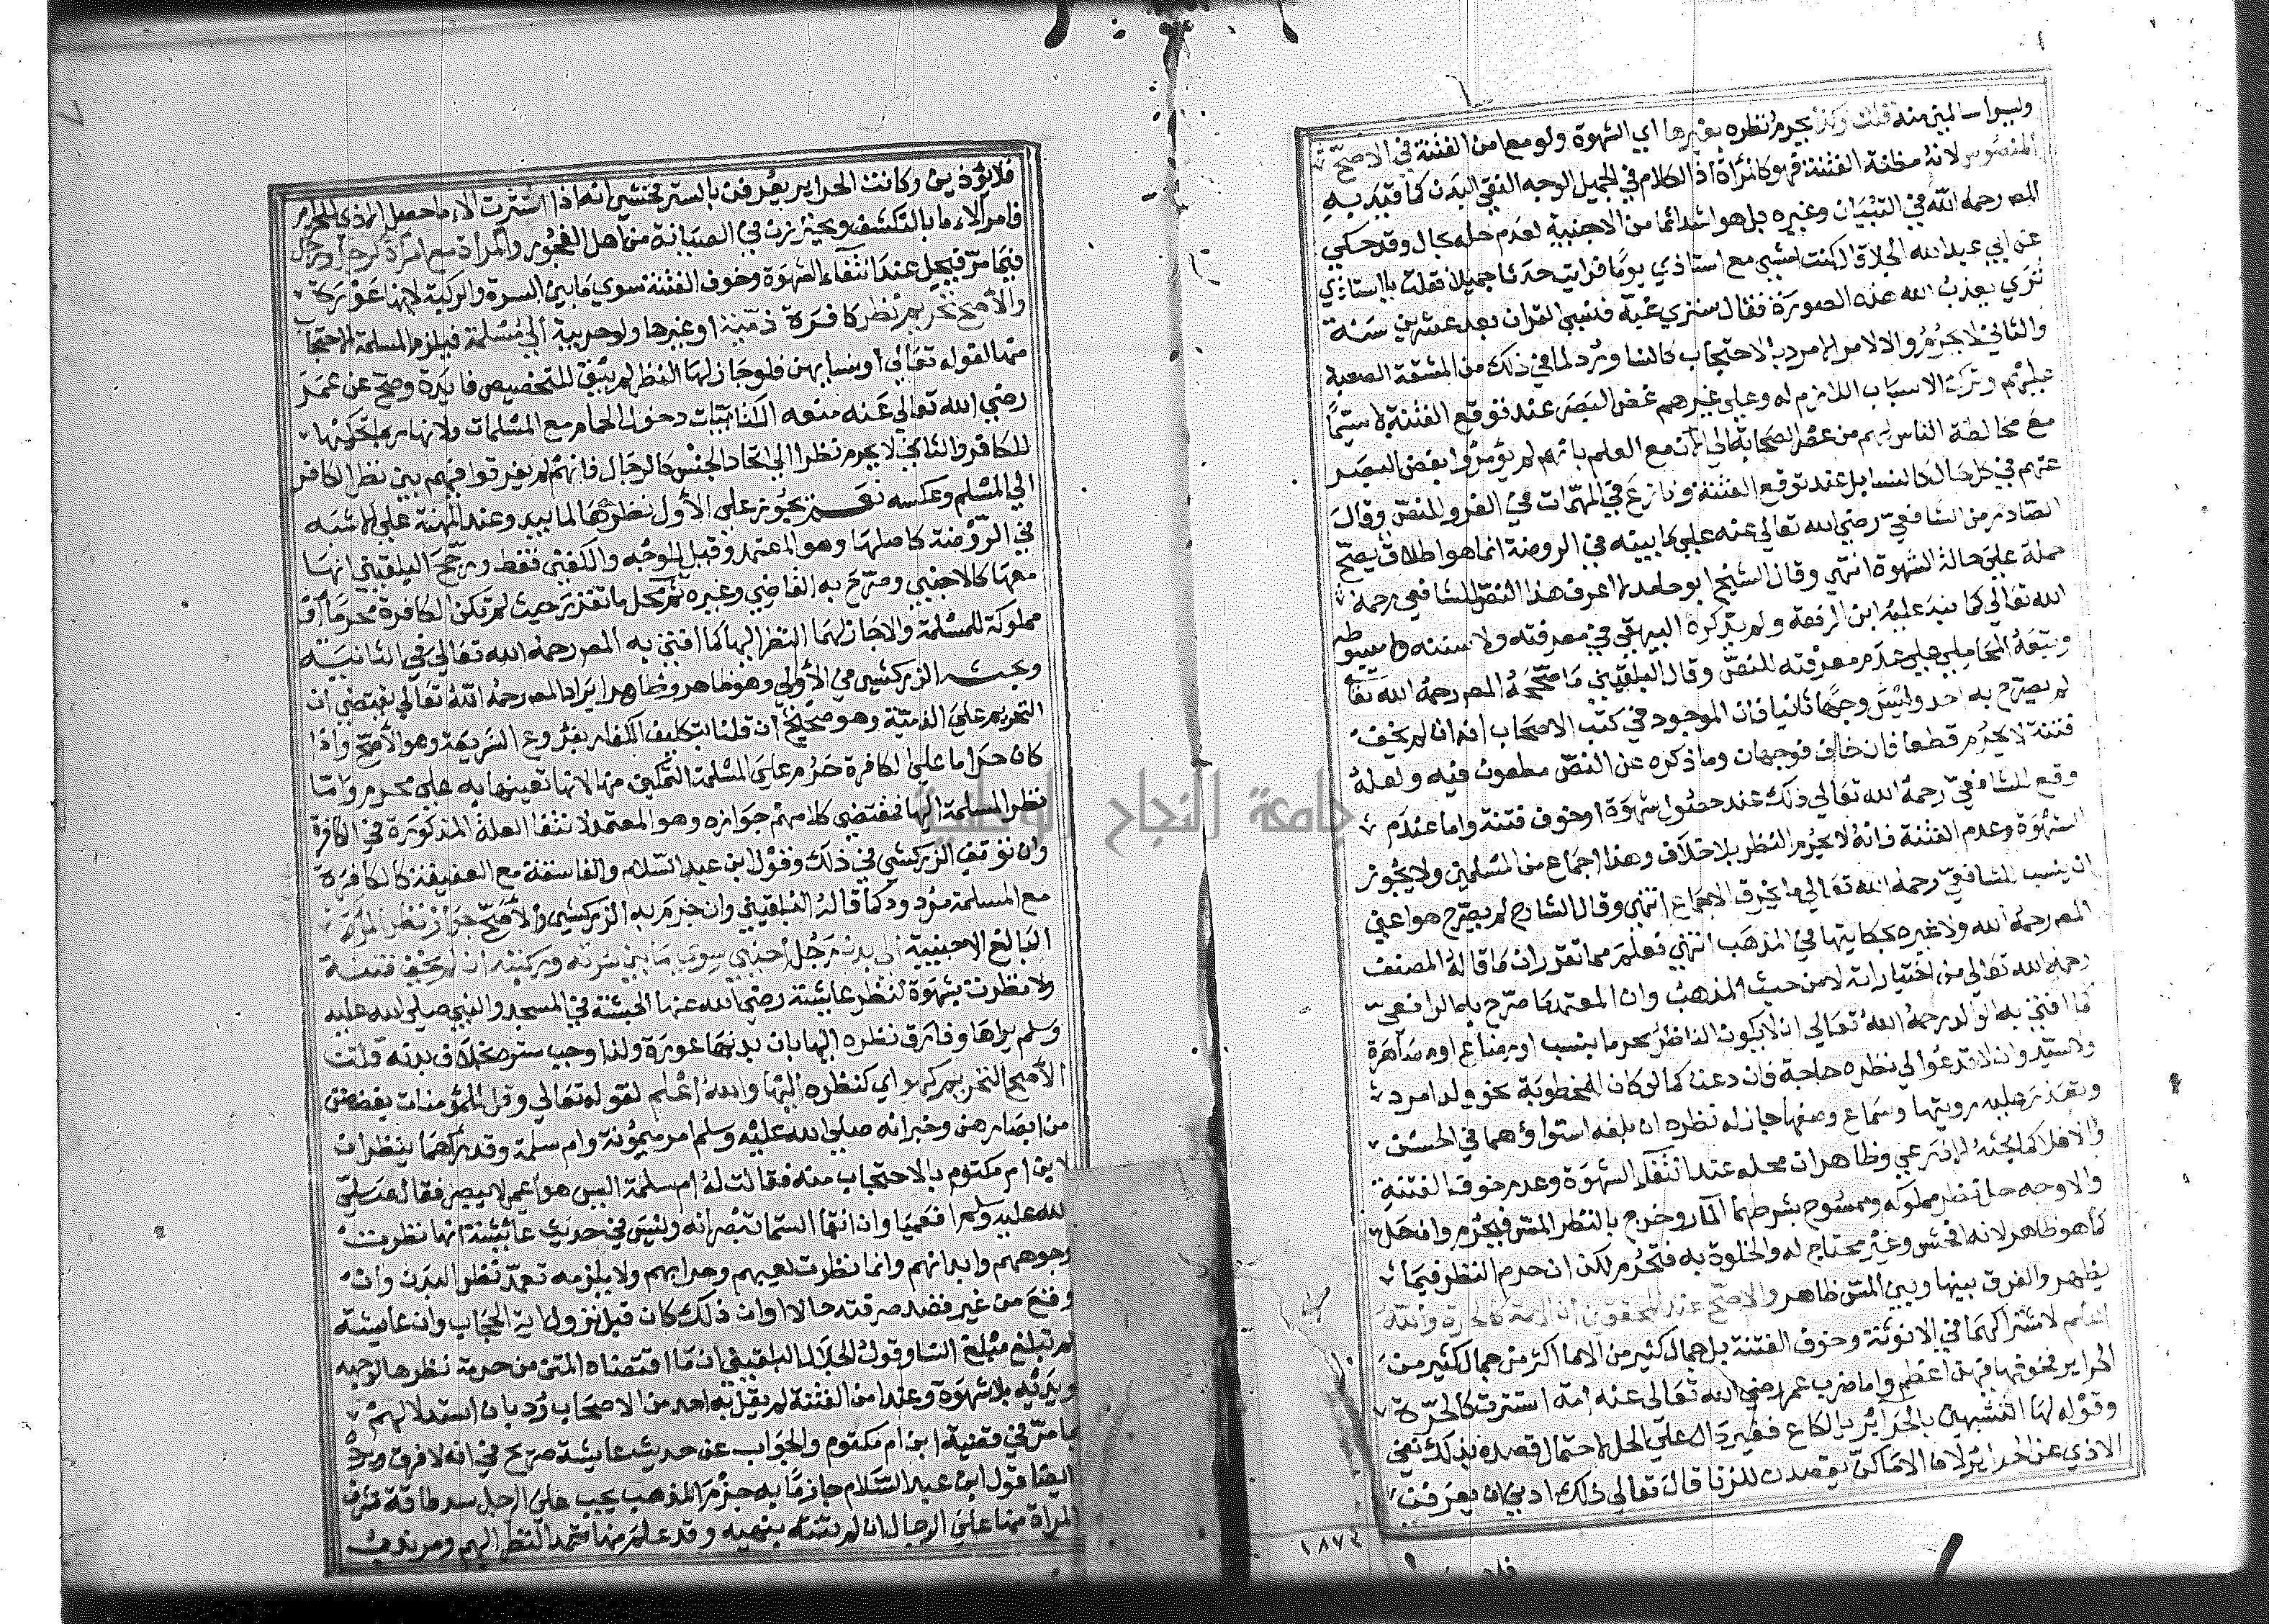 وليوا المبين منه قلت وكذا يحرم نظره بغيرها اي الشهوة ولو مع امن الفتنة في الاصحّ
المنصوص لانهُ مظنة الفتنة فهو كالمراة اذ الكلام في الجميل الوجه النقي البدن كما قيّد به
المص رحمه اللّٰه في التبيان وغيره بل هو اشد اثما من الاجنبية لعدم حله بحال وقد حكي
عن ابي عبد الله الجلاء قال كنت امشي مع استاذي يومًا فرايت حدثا جميلا فقلت يا استاذي
تري يعذب الله هذه الصورة فقال ستري غبّه فنسي القران بعد عشرين سنة
والثاني لا يحرم والا لامر الامرد بالاحتجاب كالنسا ورُد لما في ذلك من المشقة الصعبة
عليهم وترك الاسباب اللازم له وعلي غيرهم غض البصر عند توقع الفتنة لا سيّما
مع مخالطة الناس لهم من عصر الصحابة الي الآن مع العلم بانهم لم يؤمروا بغض البصر
عنهم في كل حال كالنسا بل عند توقع الفتنة ونازع في المهمّات في العزو للنصّ وقال
الصادر من الشافعيّ رضي الله تعالي عنه علي ما بينه في الروضة انما هو اطلاق يصحّ
حمله علي حالة الشهوة انتهي وقال الشيخ ابو حامد لا اعرف هذا النصّ للشافعي رحمه
الله تعالي كما نبه عليه ابن الرفعة ولم يذكره البيهقي في معرفته ولا سننه ولا مبسوطه
وتبعهُ المحاملي علي عدم معرفته للنصّ وقال البلقيني ما صححهُ المص رحمهُ الله تعا
لم يصرّح به احد وليس وجهًا ثانيا فان الموجود في كتب الاصحاب انه ان لم يخف
فتنة لا يحرم قطعا فان خاف فوجهان وما ذكره عن النصّ مطعون فيه ولعلهُ
وقع للشافعيّ رحمهُ الله تعالي ذلك عند حصُول شهوة او خوف فتنة واما عند عدم
الشهوة وعدم الفتنة فانهُ لا يحرم النظر بلا خلاف وهذا اجماع من المسلمين ولا يجوز
ان ينسب للشافعيّ رحمه الله تعالي ما يخرق الاجماع انتهي وقال الشارح لم يصرّح هو اعني
المص رحمهُ الله ولا غيره بحكايتها في المذهب انتهي فعُلم مما تقرر ان ما قالهُ المصنف
رحمه الله تعالي من اختياراته لا من حيث المذهب وان المعتمد ما صرّح به الرافعيّ
كما افتي به الوالد رحمهُ اللهُ تعالي ان لا يكون الناظر محرما بنسب او رضاع او مصاهرة
ولا سيّد وان لا تدعُو الي نظره حاجة فان دعت كما لو كان المخطوبة نحو ولد امرد
وتعذر عليه رويتها وسماع وصفها جاز له نظره ان بلغه استواؤهما في الحسن
والا فلا كما بحثهُ الاذرعي وظاهر ان محله عند انتفاء الشهوة وعدم خوف الفتنة
والاوجه حل نظر مملوكه وممسُوح بشرطهما المار وخرج بالنظر المسّ فيحرم وان حلّ
كما هو ظاهر لانه افحش وغير محتاج له والخلوة به فتحرم لكن ان حرم النظر فيما
يظهر والفرق بينها وبين المسّ ظاهر والاصحّ عند المحققين ان الامة كالحرة واللّٰه
اعلم لاشتراكهما في الانوثة وخوف الفتنة بل جمال كثير من الاما اكثر من جمال كثير من
الحراير فخوفها فيهن اعظم واما ضرب عمر رضي الله تعالي عنه امة استترت كالحرة
وقوله لها اتتشبهين بالحرائر يا لكاع فغير دال علي الحل لاحتمال قصده بذلك نفي
الاذي عن الحرائر لان الاما كنّ يقصدن للزنا قال تعالي ذلك ادني ان يعرفن
١٨٧٣
فلا
فلا يؤذين وكانت الحراير يعرفن بالستر فخشي انه اذا استترت الاما حصل الاذي للحراير
فامر الاما بالتكشف ويحترزن في الصيانة من اهل الفجور والمراة مع امراة كرجل ورجل
فيما مرّ فيحل عند انتفاء الشهوة وخوف الفتنة سوي ما بين السرة والركبة لانها عورة
والاصح تحريم نظر كافرة ذمّيّة او غيرها ولو حربية الي مسلمة فيلزم المسلمة الاحتجاب
منها لقوله تعالي او نسايهن فلو جاز لها النظر لم يبق للتخصيص فايدة وصح عن عمر
رضي الله تعالي عنه منعه الكتابيّات دخول الحمام مع المسلمات ولانها ربما تحكيها
للكافر والثاني لا يحرم نظرا الي اتحاد الجنس كالرجال فانهم لم يفرقوا فيهم بين نظر الكافر
الي المسلم وعكسه نعم يجوز علي الأول نظرها لما يبدو عند المهنة علي الاشبه
في الروضة كاصلها وهو المعتمد وقيل الوجه والكفين فقط ورجح البلقيني انها
معها كالاجنبي وصرّح به القاضي وغيره ثم محل ما تقرر حيث لم تكن الكافرة محرما او
مملوكة للمسلمة والا جاز لهما النظر اليها كما افتي به المص رحمهُ الله تعالي في الثانية
وبحثه الزركشي في الأولي وهو ظاهر وظاهر ايراد المص رحمهُ اللّٰه تعالي يقتضي ان
التحريم علي الذميّة وهو صحيح ان قلنا بتكليف الكفار بفروع الشريعة وهو الأصح واذا
كان حراما علي الكافرة حرُم علي المسلمة التمكين منها لانها تعينها به علي محرم وامّا
نظر المسلمة اليها فمقتضي كلامهم جوازه وهو المعتمد لانتفا العلة المذكورة في الكافرة
وان توقف الزركشي في ذلك وقول ابن عبد السّلام والفاسقة مع العفيفة كالكافرة
مع المسلمة مردود كما قالهُ البلقيني وان جزم به الزركشي والأصحّ جواز نظر المراة
البالغ الاجنبية الي بدن رجل اجنبي سوي ما بين سرته وركبته ان لم يخف فتنة
ولا نظرت بشهوة لنظر عايشة رضي الله عنها الحبشة في المسجد والنبي صلي الله عليه
وسلم يراها وفارق نظره اليها بان بدنها عورة ولذا وجب ستره بخلاف بدنه قلت
الأصح التحريم كهو اي كنظره اليها واللّٰه اعلم لقوله تعالي وقل للمؤمنات يغضضن
من ابصارهن وخبر انه صلي الله عليه وسلم امر ميمونة وام سلمة وقد رآهما ينظران
لابن ام مكتوم بالاحتجاب منه فقالت لهُ ام سلمة اليس هو اعمي لا يبصر فقال صلي
الله عليه وسلم افعميا وان انتما الستما تبصرانه وليس في حديث عائشة انها نظرت
وجوههم وابدانهم وانما نظرت لعبهم وحرابهم ولا يلزمه تعمّد نظر البدن وان
وقع من غير قصد صرفته حالا او ان ذلك كان قبل نزول اية الحجاب وان عايشة
لم تبلغ مبلغ النسا وقول الجلال البلقيني ان ما اقتضاه المتن من حرمة نظرها لوجهه
ويديه بلا شهوة وعند امن الفتنة لم يقل به احد من الاصحاب رُد بان استدلالهم
بما مرّ في قضية ابن ام مكتوم والجواب عن حديث عايشة صريح في انه لا فرق ويردّ
ايضا قول ابن عبد السّلام جازمًا به جزم المذهب يجب علي الرجل سد طاقة تشرف
المراة منها علي الرجال ان لم تنته بنهيه وقد علم منها تعمد النظر اليهم ومر ندب
جامعة النجاح الوطنية